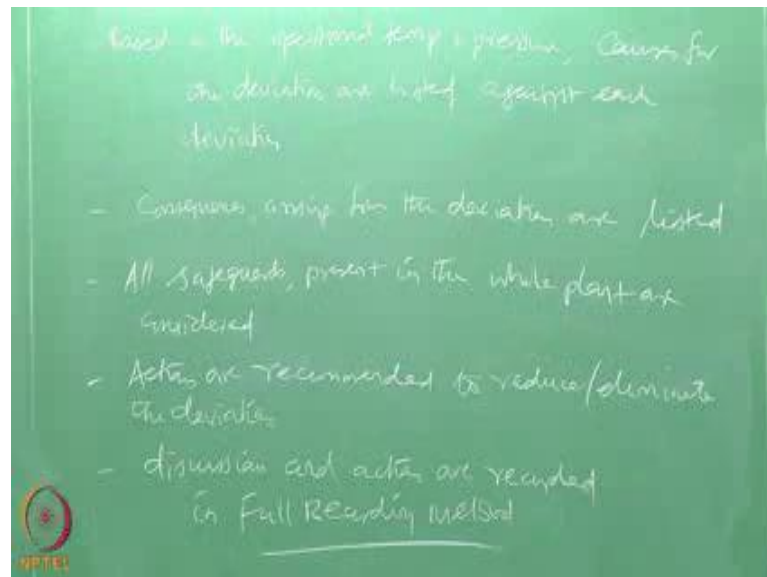 Based on the operational temp & pressure, Causes for
the deviation are listed against each
deviation
- Consequences, arising from the deviation are listed
- All safeguards, present in the whole plant are
considered
- Action are recommended to reduce/eliminate
the deviation
- discussion and action are recorded
in Full Recording method
NPTEL